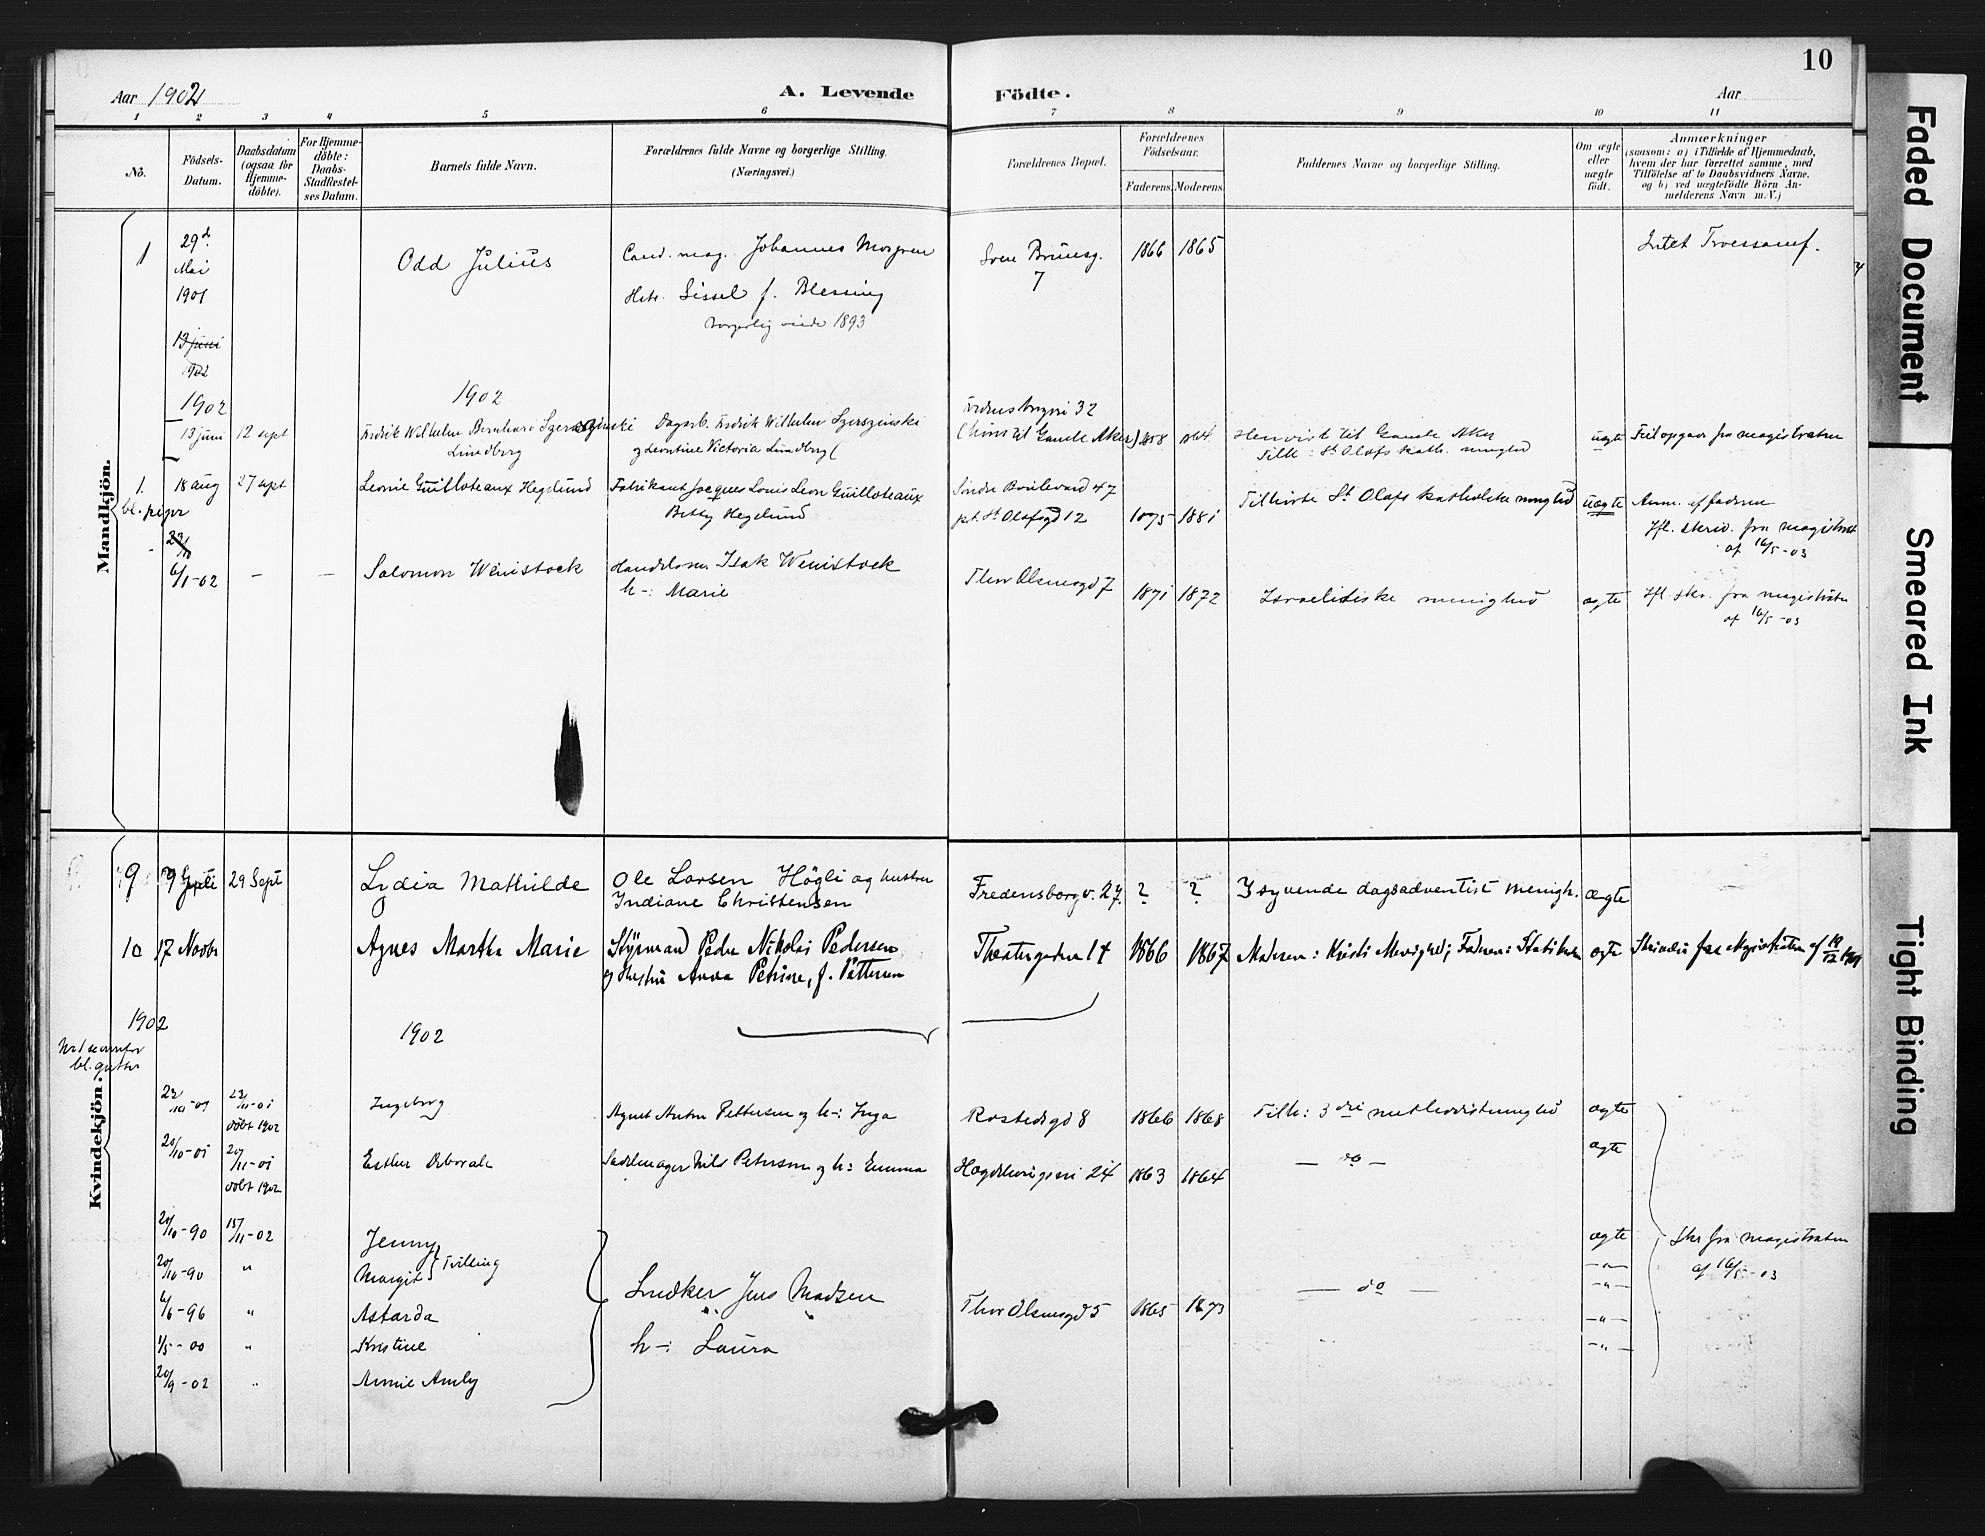 10
Aar 1902
A. Levende Födte.
Aar
1 2 3 4 5 6 7 8 9 10 11
No.
Födsels-Datum.
Daabsdatum (ogsaa för Hjemme-döbte).
For Hjemme-döbte: Daabs-Stadfæstel-ses Datum.
Barnets fulde Navn.
Forældrenes fulde Navne og borgerlige Stilling. (Næringsvei.)
Forældrenes Bopæl.
Forældrenes Födselsaar.
Faderens. Moderens.
Faddernes Navne og borgerlige Stilling.
Om ægte eller uægte födt.
Anmærkninger
(saasom: a) i Tilfælde af Hjemmedaab,
hvem der har forrettet samme, med
Tilföielse af to Daabsvidners Navne.
og b) ved uægtefödte Börn An-
melderens Navn m. V.)
Mandkjön.
1 29d. Mai 1901 Odd Julius Cand. mag. Johannes 7 1866 1865 Intet Troessamf.
Hstr. Sissel f. Blessing
borgerlig viede 1893
13 juni
1902
1902 1902
13 juni 12 sept Fredrik Wilhelm Bernhard Lindberg Dagarb. Fredrik Wilhelm Szerszinski
og Leontine Victoria Lindberg 32 til Gamle Aker) 1864 Henvist til Gamle Aker
Tilh: St Olafs kath. menighed uægte fra magistraten
1. 18 aug 27 sept Leonie Guilloteaux Hegelund Fabrikant Jacques Louis Leon Guilloteaux
Betty Hegelund Söndre Boulevard 47
St Olafsgd 12 1875 1881 Tilhörte St Olafs katholske menighed uægte Anm. af faderen
Ifl. skriv. fra magistrat
af 16/5-03
6/1-02 — — Salomon Weinstock Handelsm. Isak Weinstock
h-: Marie Thor Olsensgd 7 1871 1872 Israelitiske menighed ægte Ifl. skr. fra magistraten
af 16/5-03
Kvindekjön.
9 29 Sept Lydia Mathilde Ole Larsen Högli og hustru
Indiane Christensen Fredensborgv. 27. ? ? Isyvende dagsadventist menigh. ægte
10 17 Novbr Agnes Martha Marie Styrmand Peder Nikolai Pedersen
og Hustru Anna Petrine, f. Pettersen Theatergaden 14 1866 1867 Moderen: Kristi Menighed; Faderen: Statskirken ægte Skrivelse fra Magistraten af 18/12 1901
1902 1902
bl. gutter
23/10-01 23/11-01
döbt 1902 Ingeborg Agent Anton Pettersen og h-: Inga Rostedsgd 8 1866 1868 Tilh: 3die methodistmenighed ægte
20/10-01 20/11-01
döbt 1902 Esther Deborah Sadelmager Nils Peterson og h: Emma 24 1863 1864 — do — ægte
20/10-90 15/11-02 Jenny
20/10-90 " Margit } Tvilling
6/6-96 " Astarda
1/5-00 " Kristine
20/9-02 " Annie Amly
Snedker Jens Madsen
h-: Laura Thor Olsensgd 5 1865 1873 — do — ægte
—"—
—"—
—"—
—"—
Skr fra magistraten
af 16/5-03
Faded Document
Smeared Ink
Tight Binding